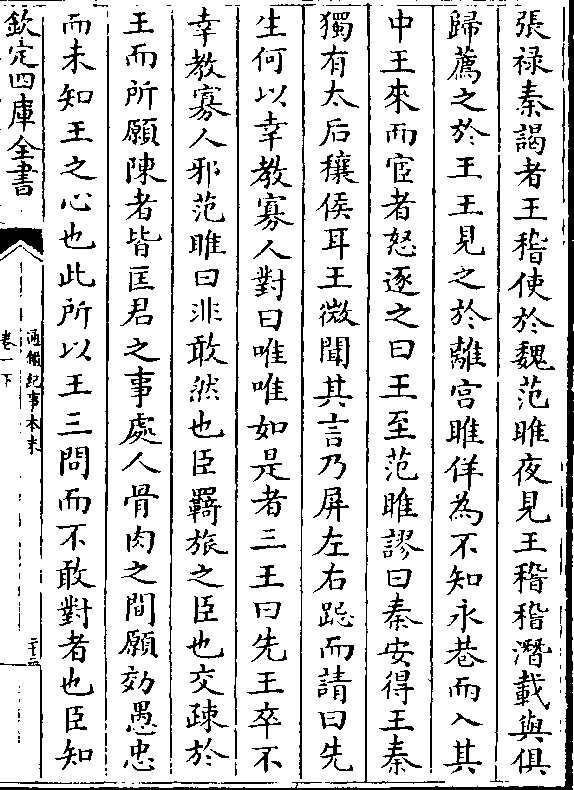 張祿秦謁者王稽使於魏范睢夜見王稽稽潛載與俱
歸薦之於王王見之於離宮睢佯為不知永巷而入其
中王來而宦者怒逐之曰王至范睢謬曰秦安得王秦
獨有太后穰侯耳王微聞其言乃屏左右跽而請曰先
生何以幸教寡人對曰唯唯如是者三王曰先王卒不
幸教寡人邪范睢曰非敢然也臣羈旅之臣也交疎於
王而所願陳者皆匡君之事處人骨肉之間願効愚忠
而未知王之心也此所以王三問而不敢對者也臣知
欽定四庫全書
通鑑紀事本末
卷一下
二十三